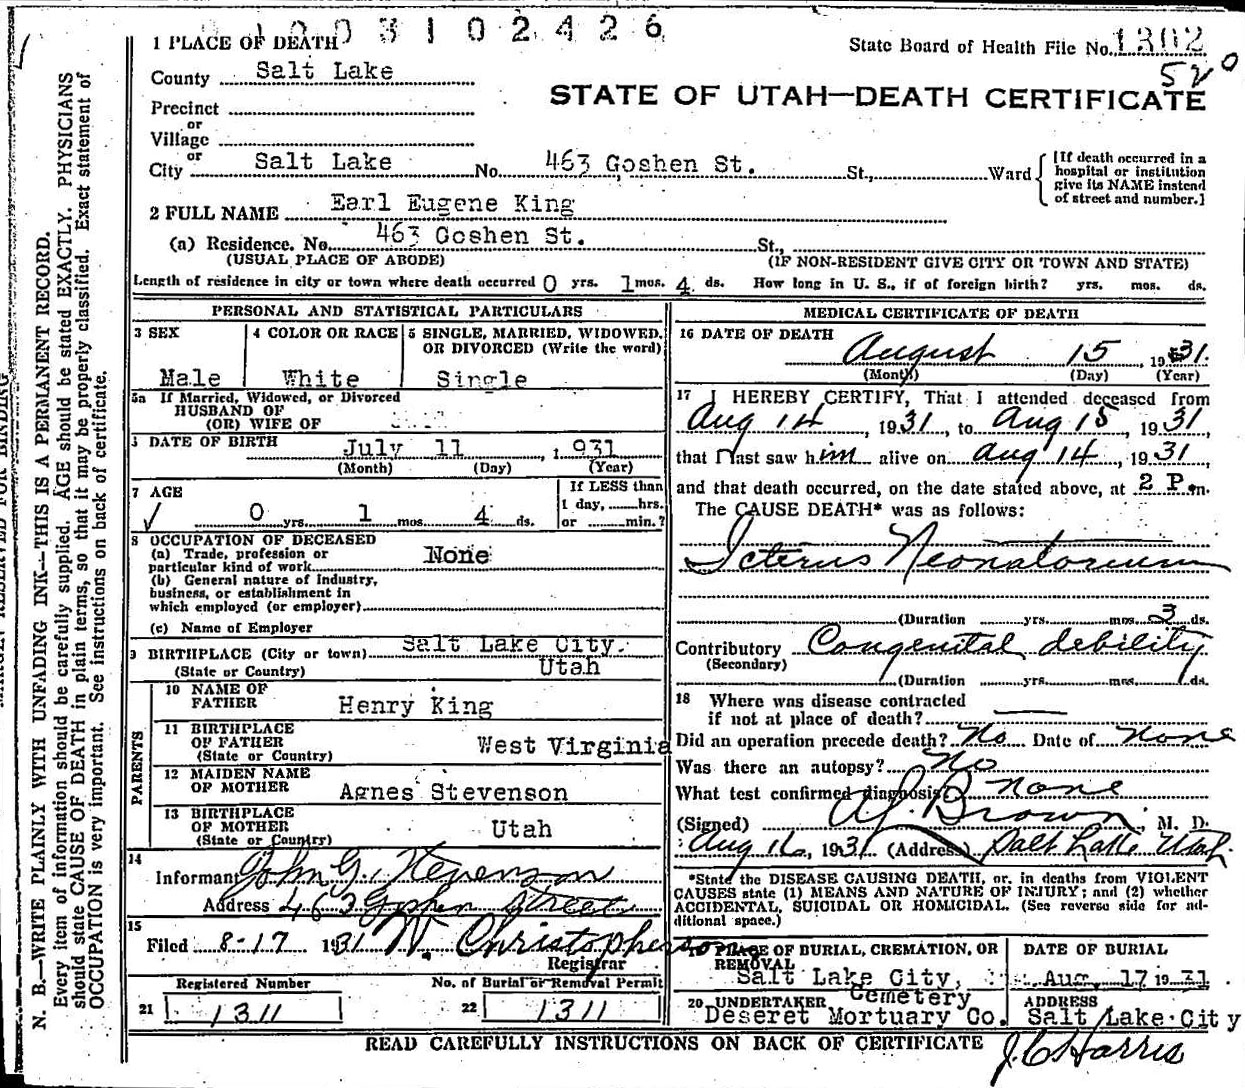 1003102426
1 PLACE OF DEATH
State Board of Health File No. 1302
520
County Salt Lake
STATE OF UTAH—DEATH CERTIFICATE
Precinct
or
Village
or
City Salt Lake No. 463 Goshen St. St., Ward
[If death occurred in a
hospital or institution
give its NAME instead
of street and number.]
2 FULL NAME Earl Eugene King
(a) Residence. No. 463 Goshen St. St.,
(USUAL PLACE OF ABODE) (IF NON-RESIDENT GIVE CITY OR TOWN AND STATE)
Length of residence in city or town where death occurred 0 yrs. 1 mos. 4 ds. How long in U. S., if of foreign birth? yrs. mos. ds.
PERSONAL AND STATISTICAL PARTICULARS
3 SEX
Male
4 COLOR OR RACE
White
5 SINGLE, MARRIED, WIDOWED,
OR DIVORCED (Write the word)
Single
5a If Married, Widowed, or Divorced
HUSBAND OF
(OR) WIFE OF
DATE OF BIRTH July 11, 1931
(Month) (Day) (Year)
7 AGE
0 yrs. 1 mos. 4 ds.
If LESS than
1 day, hrs.
or min.?
8 OCCUPATION OF DECEASED
(a) Trade, profession or
particular kind of work None
(b) General nature of industry,
business, or establishment in
which employed (or employer)
(c) Name of Employer
9 BIRTHPLACE (City or town) Salt Lake City.
(State or Country) Utah
PARENTS
10 NAME OF
FATHER Henry King
11 BIRTHPLACE
OF FATHER West Virginia
(State or Country)
12 MAIDEN NAME
OF MOTHER Agnes Stevenson
13 BIRTHPLACE
OF MOTHER Utah
(State or Country)
14
Informant John G. Stevenson
Address 463 Goshen Street
15
Filed 8-17 1931 W. Christopherson
Registrar
Registered Number No. of Burial or Removal Permit
21 1311 22 1311
MEDICAL CERTIFICATE OF DEATH
16 DATE OF DEATH
August 15, 1931.
(Month) (Day) (Year)
17 I HEREBY CERTIFY, That I attended deceased from
Aug 14, 1931, to Aug 15, 1931,
that I last saw him alive on Aug 14, 1931,
and that death occurred, on the date stated above, at 2 P.m.
The CAUSE DEATH* was as follows:
Icterus Neonatorium
(Duration yrs. mos. 3 ds.
Contributory Congenital debility
(Secondary)
(Duration yrs. mos. ds.
18 Where was disease contracted
if not at place of death?
Did an operation precede death? No Date of None
Was there an autopsy? No
What test confirmed diagnosis? none
(Signed) Brown, M. D.
Aug 16, 1931 (Address) Salt Lake Utah
*State the DISEASE CAUSING DEATH, or, in deaths from VIOLENT
CAUSES state (1) MEANS AND NATURE OF INJURY; and (2) whether
ACCIDENTAL, SUICIDAL OR HOMICIDAL. (See reverse side for ad-
ditional space.)
19 PLACE OF BURIAL, CREMATION, OR
REMOVAL
Salt Lake City,
Cemetery
DATE OF BURIAL
Aug. 17 1931
20 UNDERTAKER
Deseret Mortuary Co.
ADDRESS
Salt Lake City
READ CAREFULLY INSTRUCTIONS ON BACK OF CERTIFICATE
J. C. Harris
N. B.—WRITE PLAINLY WITH UNFADING INK—THIS IS A PERMANENT RECORD.
Every item of information should be carefully supplied. AGE should be stated EXACTLY. PHYSICIANS
should state CAUSE OF DEATH in plain terms, so that it may be properly classified. Exact statement of
OCCUPATION is very important. See instructions on back of certificate.